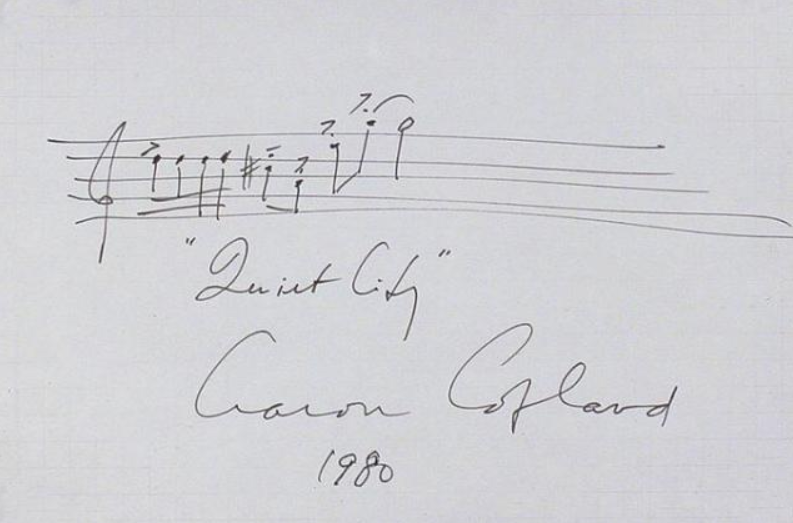 "Quiet City"
Aaron Copland
1980